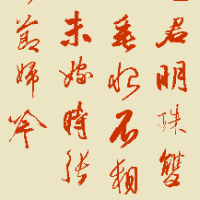 君明珠雙
垂恨不相
未嫁時張
節婦吟